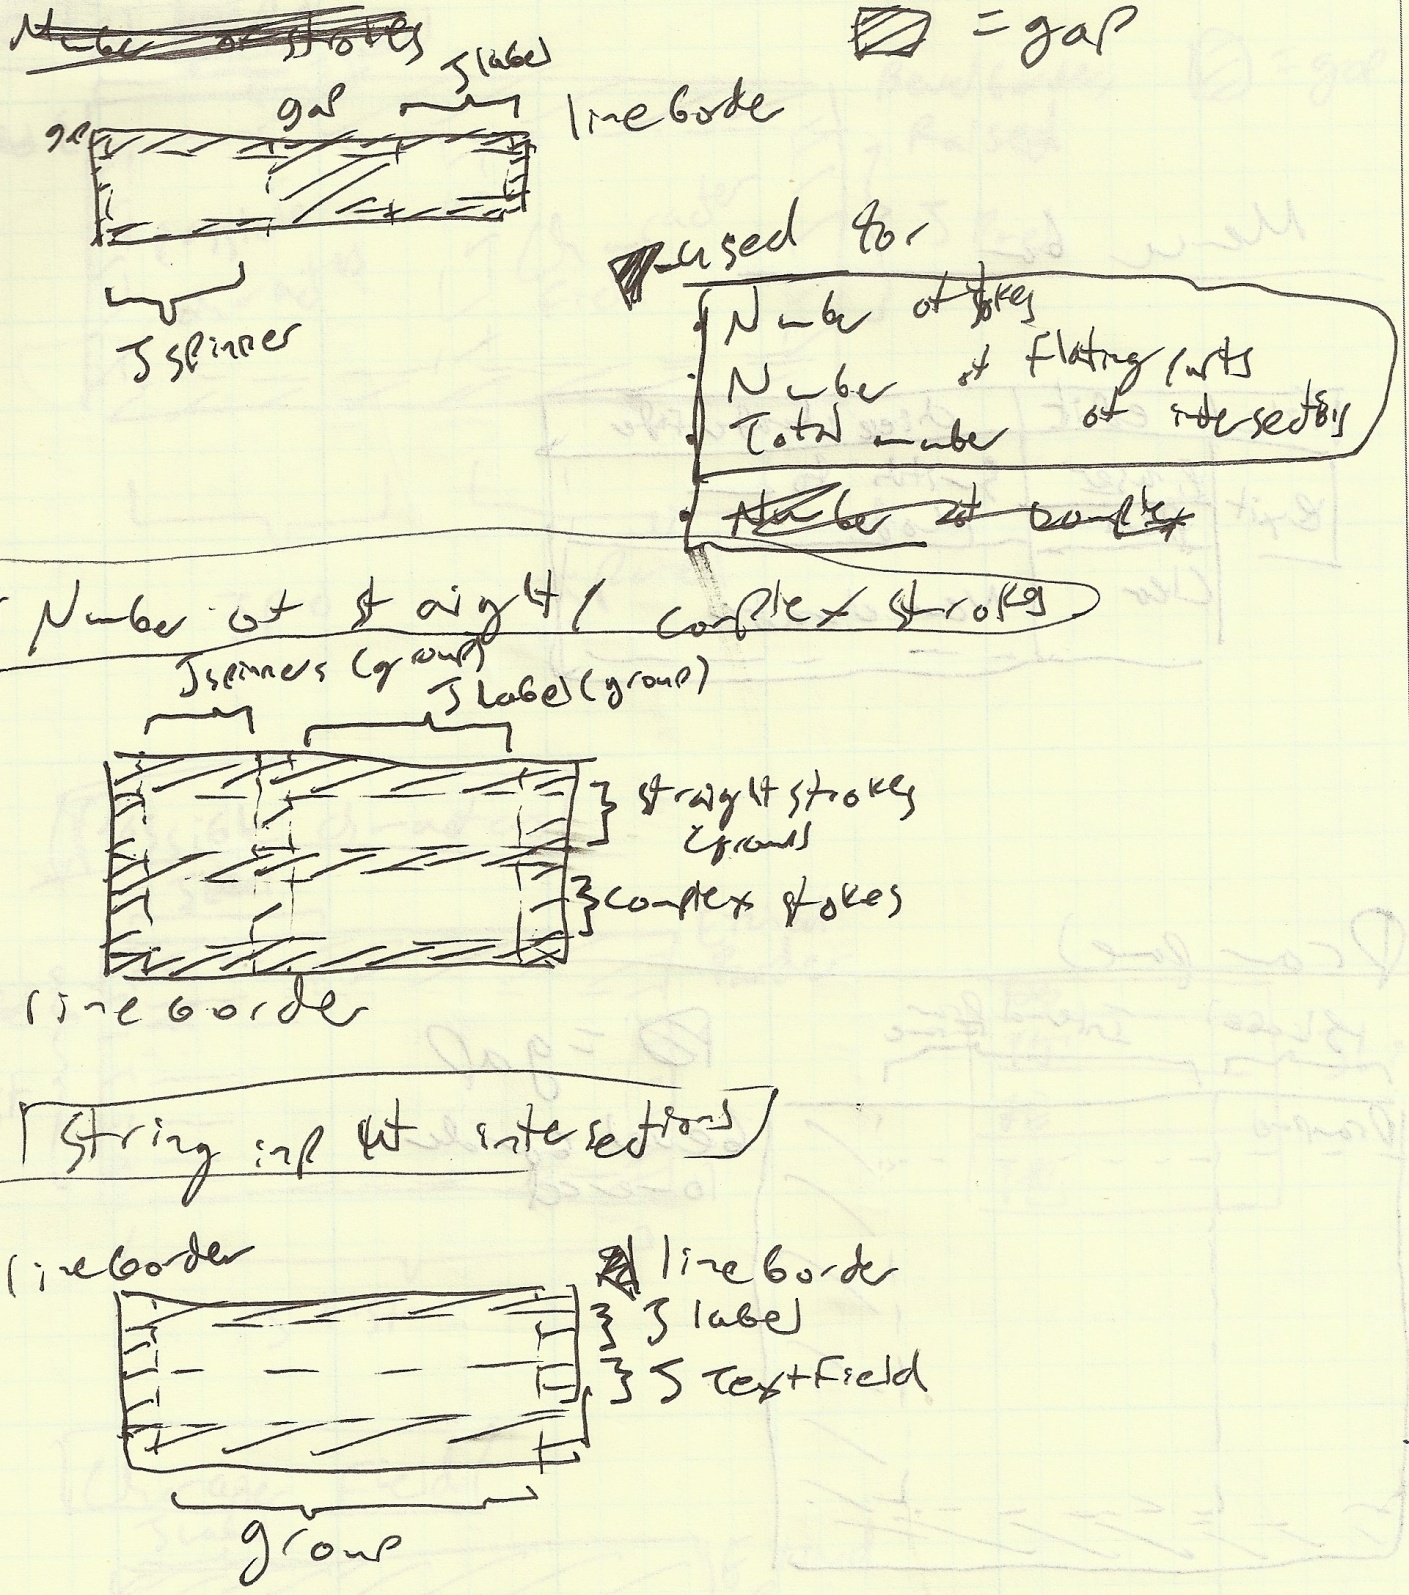 Number of strokes
= gap
Jlabel
gap
line border
JSpinner
used for
Number of stokes
Number of floating parts
Total number of intersections
Number of complex
Number of straight / complex strokes
Jspinners (group)
JLabel (group)
straight strokes
complex stokes
line border
String input intersections
line border
line border
J label
J TextField
group